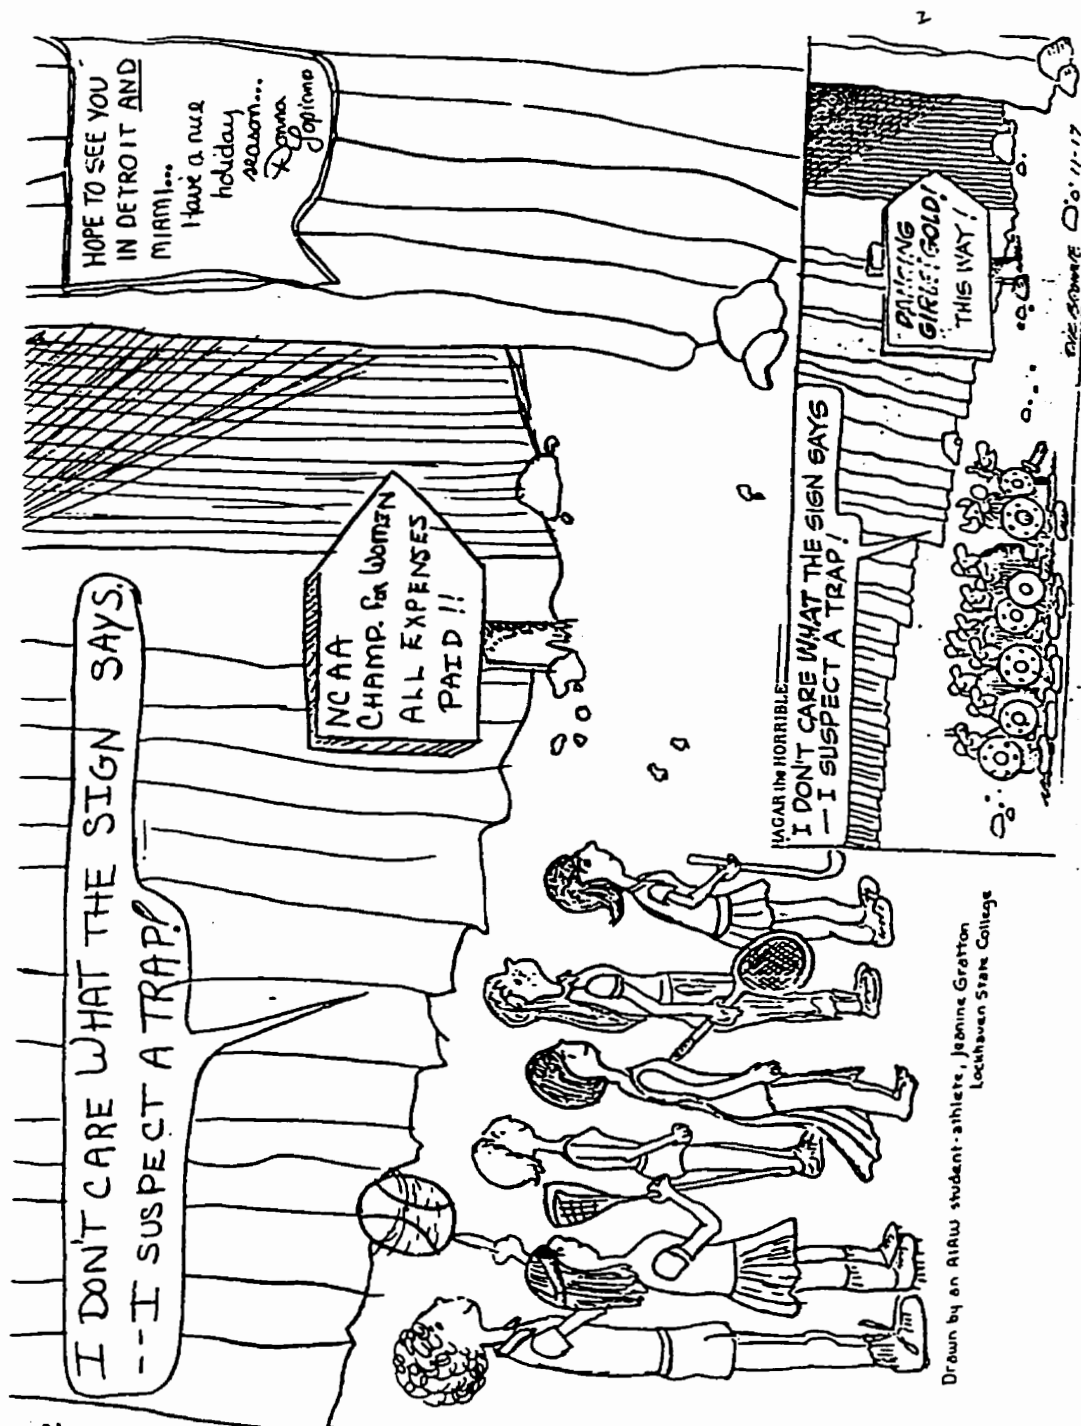 I DON'T CARE WHAT THE SIGN SAYS.
--I SUSPECT A TRAP!
NCAA
CHAMP. for WOMEN
ALL EXPENSES
PAID!!
HOPE TO SEE YOU
IN DETROIT AND
MIAMI...
Have a nice
holiday
season...
Donna
Lopiano
Drawn by an AIAW student-athlete, Jeanine Gratton
Lockhaven State College
HAGAR the HORRIBLE
I DON'T CARE WHAT THE SIGN SAYS
—I SUSPECT A TRAP!
DANCING
GIRLS! GOLD!
THIS WAY!
DIK BROWNE 11-17